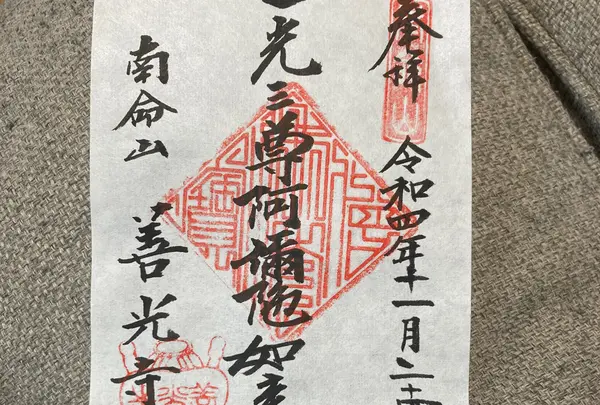 奉拝
令和四年十一月二十
光三尊阿彌陀如
南命山
善光寺